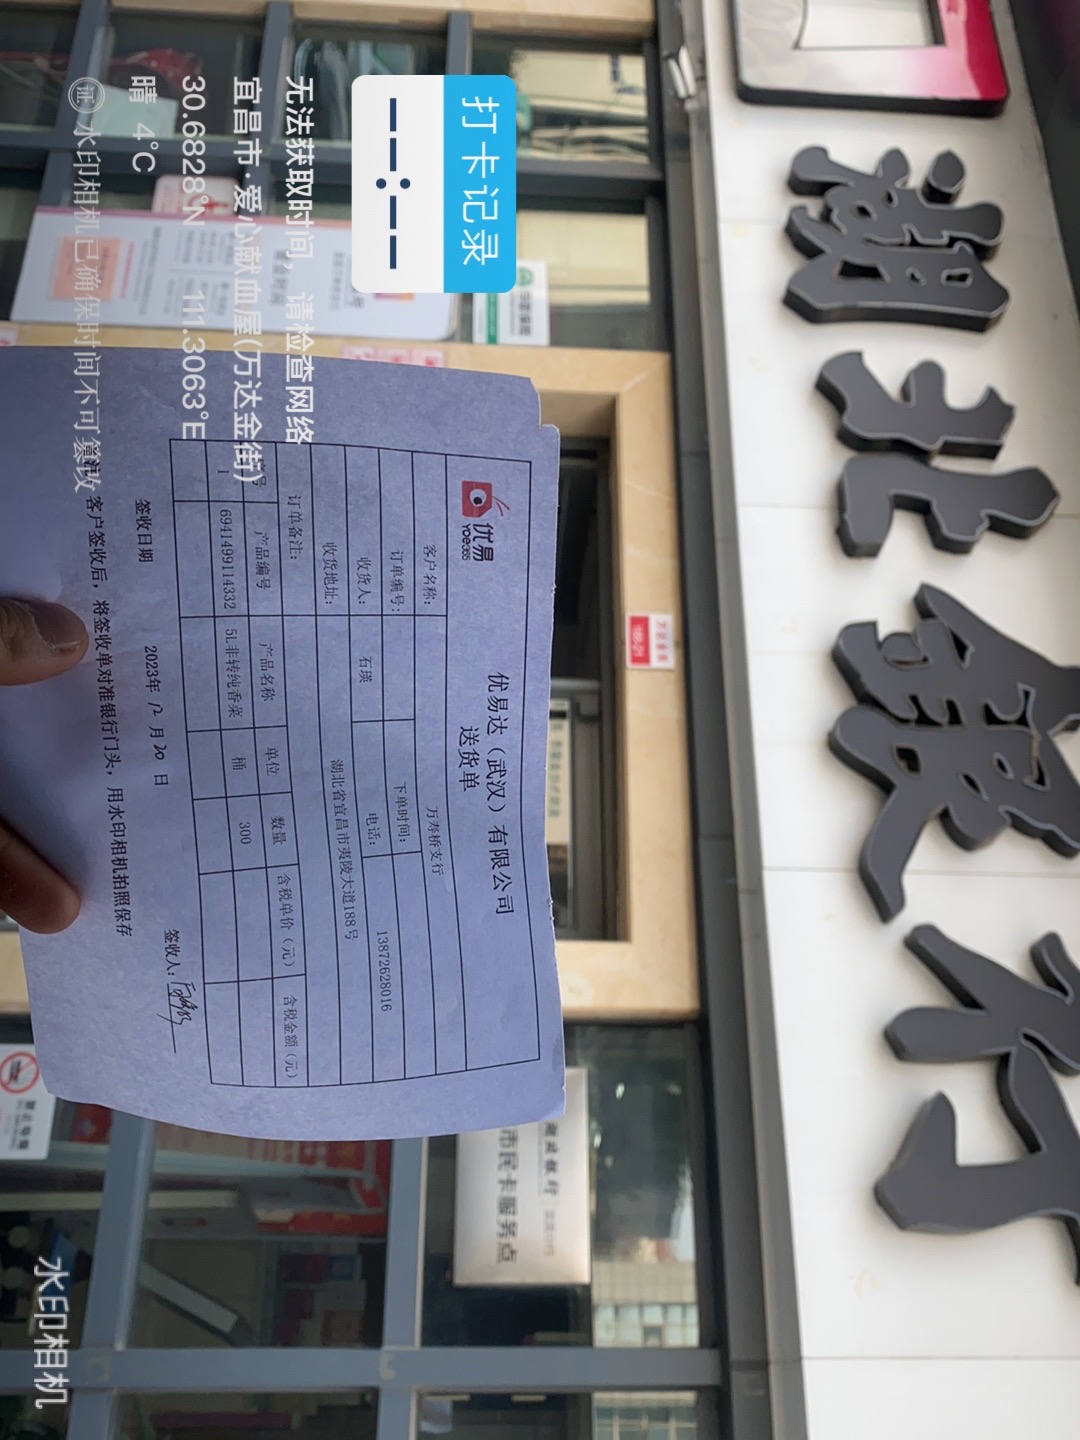 湖北银行
打卡记录
--:--
无法获取时间，请检查网络
宜昌市·爱心献血屋(万达金街)
30.6828°N 111.3063°E
晴 4°C
证 水印相机已确保时间不可篡改
优易
YOe365
优易达（武汉）有限公司
送货单
客户名称： 万寿桥支行
订单编号： 下单时间：
收货人： 石瑛 电话： 13872628016
收货地址： 湖北省宜昌市夷陵大道188号
订单备注：
号 产品编号 产品名称 单位 数量 含税单价（元） 含税金额（元）
1 6941499114332 5L非转纯香菜 桶 300
签收人：
签收日期 2023年 12 月 20 日
客户签收后，将签收单对准银行门头，用水印相机拍照保存
188-21
湖北银行
市民卡服务点
水印相机